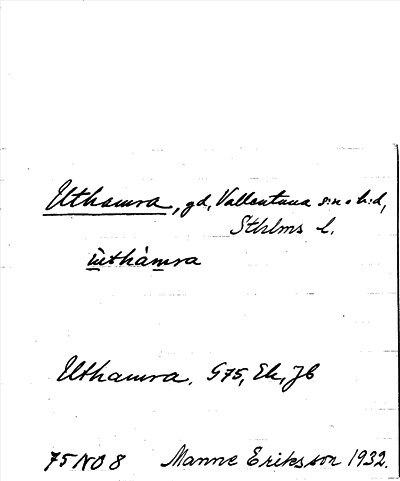 Uthamra, gd, Vallentuna s:n o h:d,
Sthlms l.
ùthàmra
Uthamra. G75, Ek, Jb
75 NO 8 Manne Eriksson 1932.